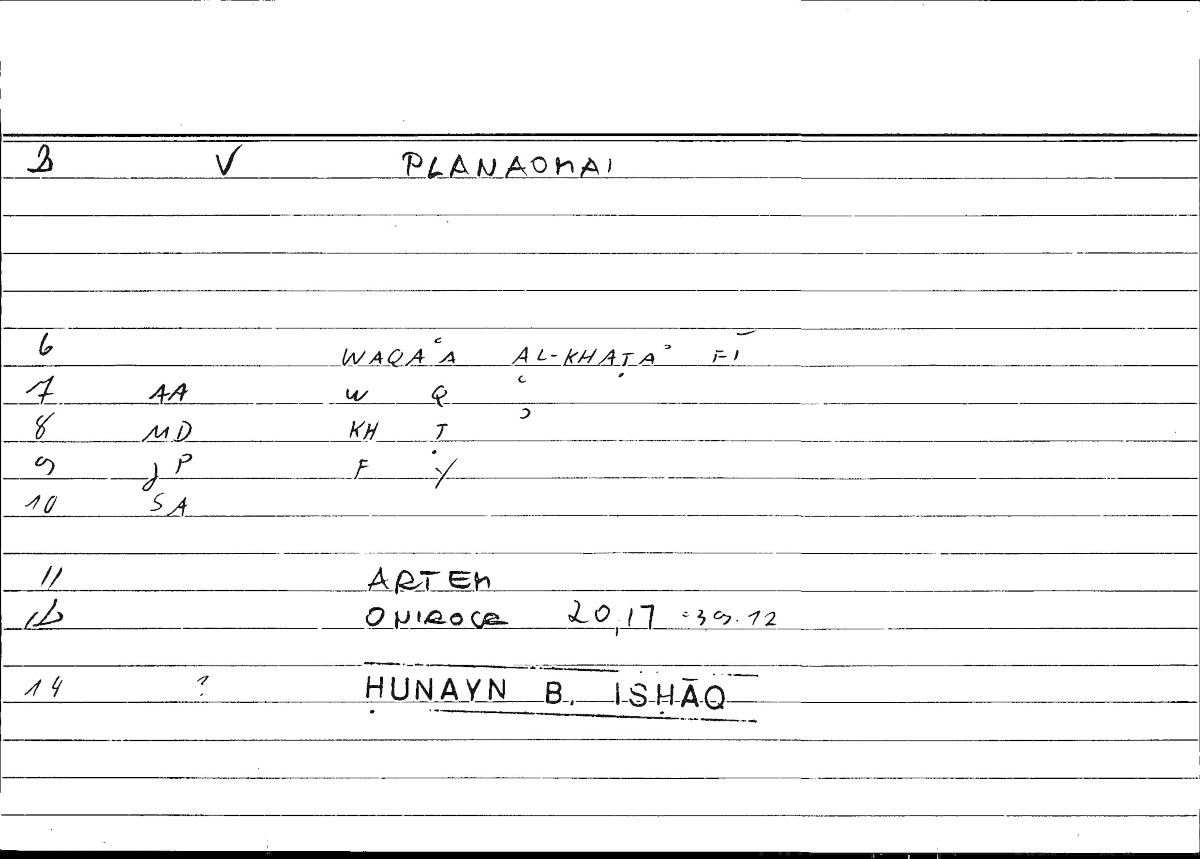 3 V PLANAOMAI
6 WAQAʿA AL-KHAṬAʾ FĪ
7 AA W Q ʿ
8 MD KH Ṭ ʾ
9 JP F Y
10 SA
11 ARTEM
12 ONIROCR 20,17 =39.12
14 ? ḤUNAYN B. ISḤĀQ